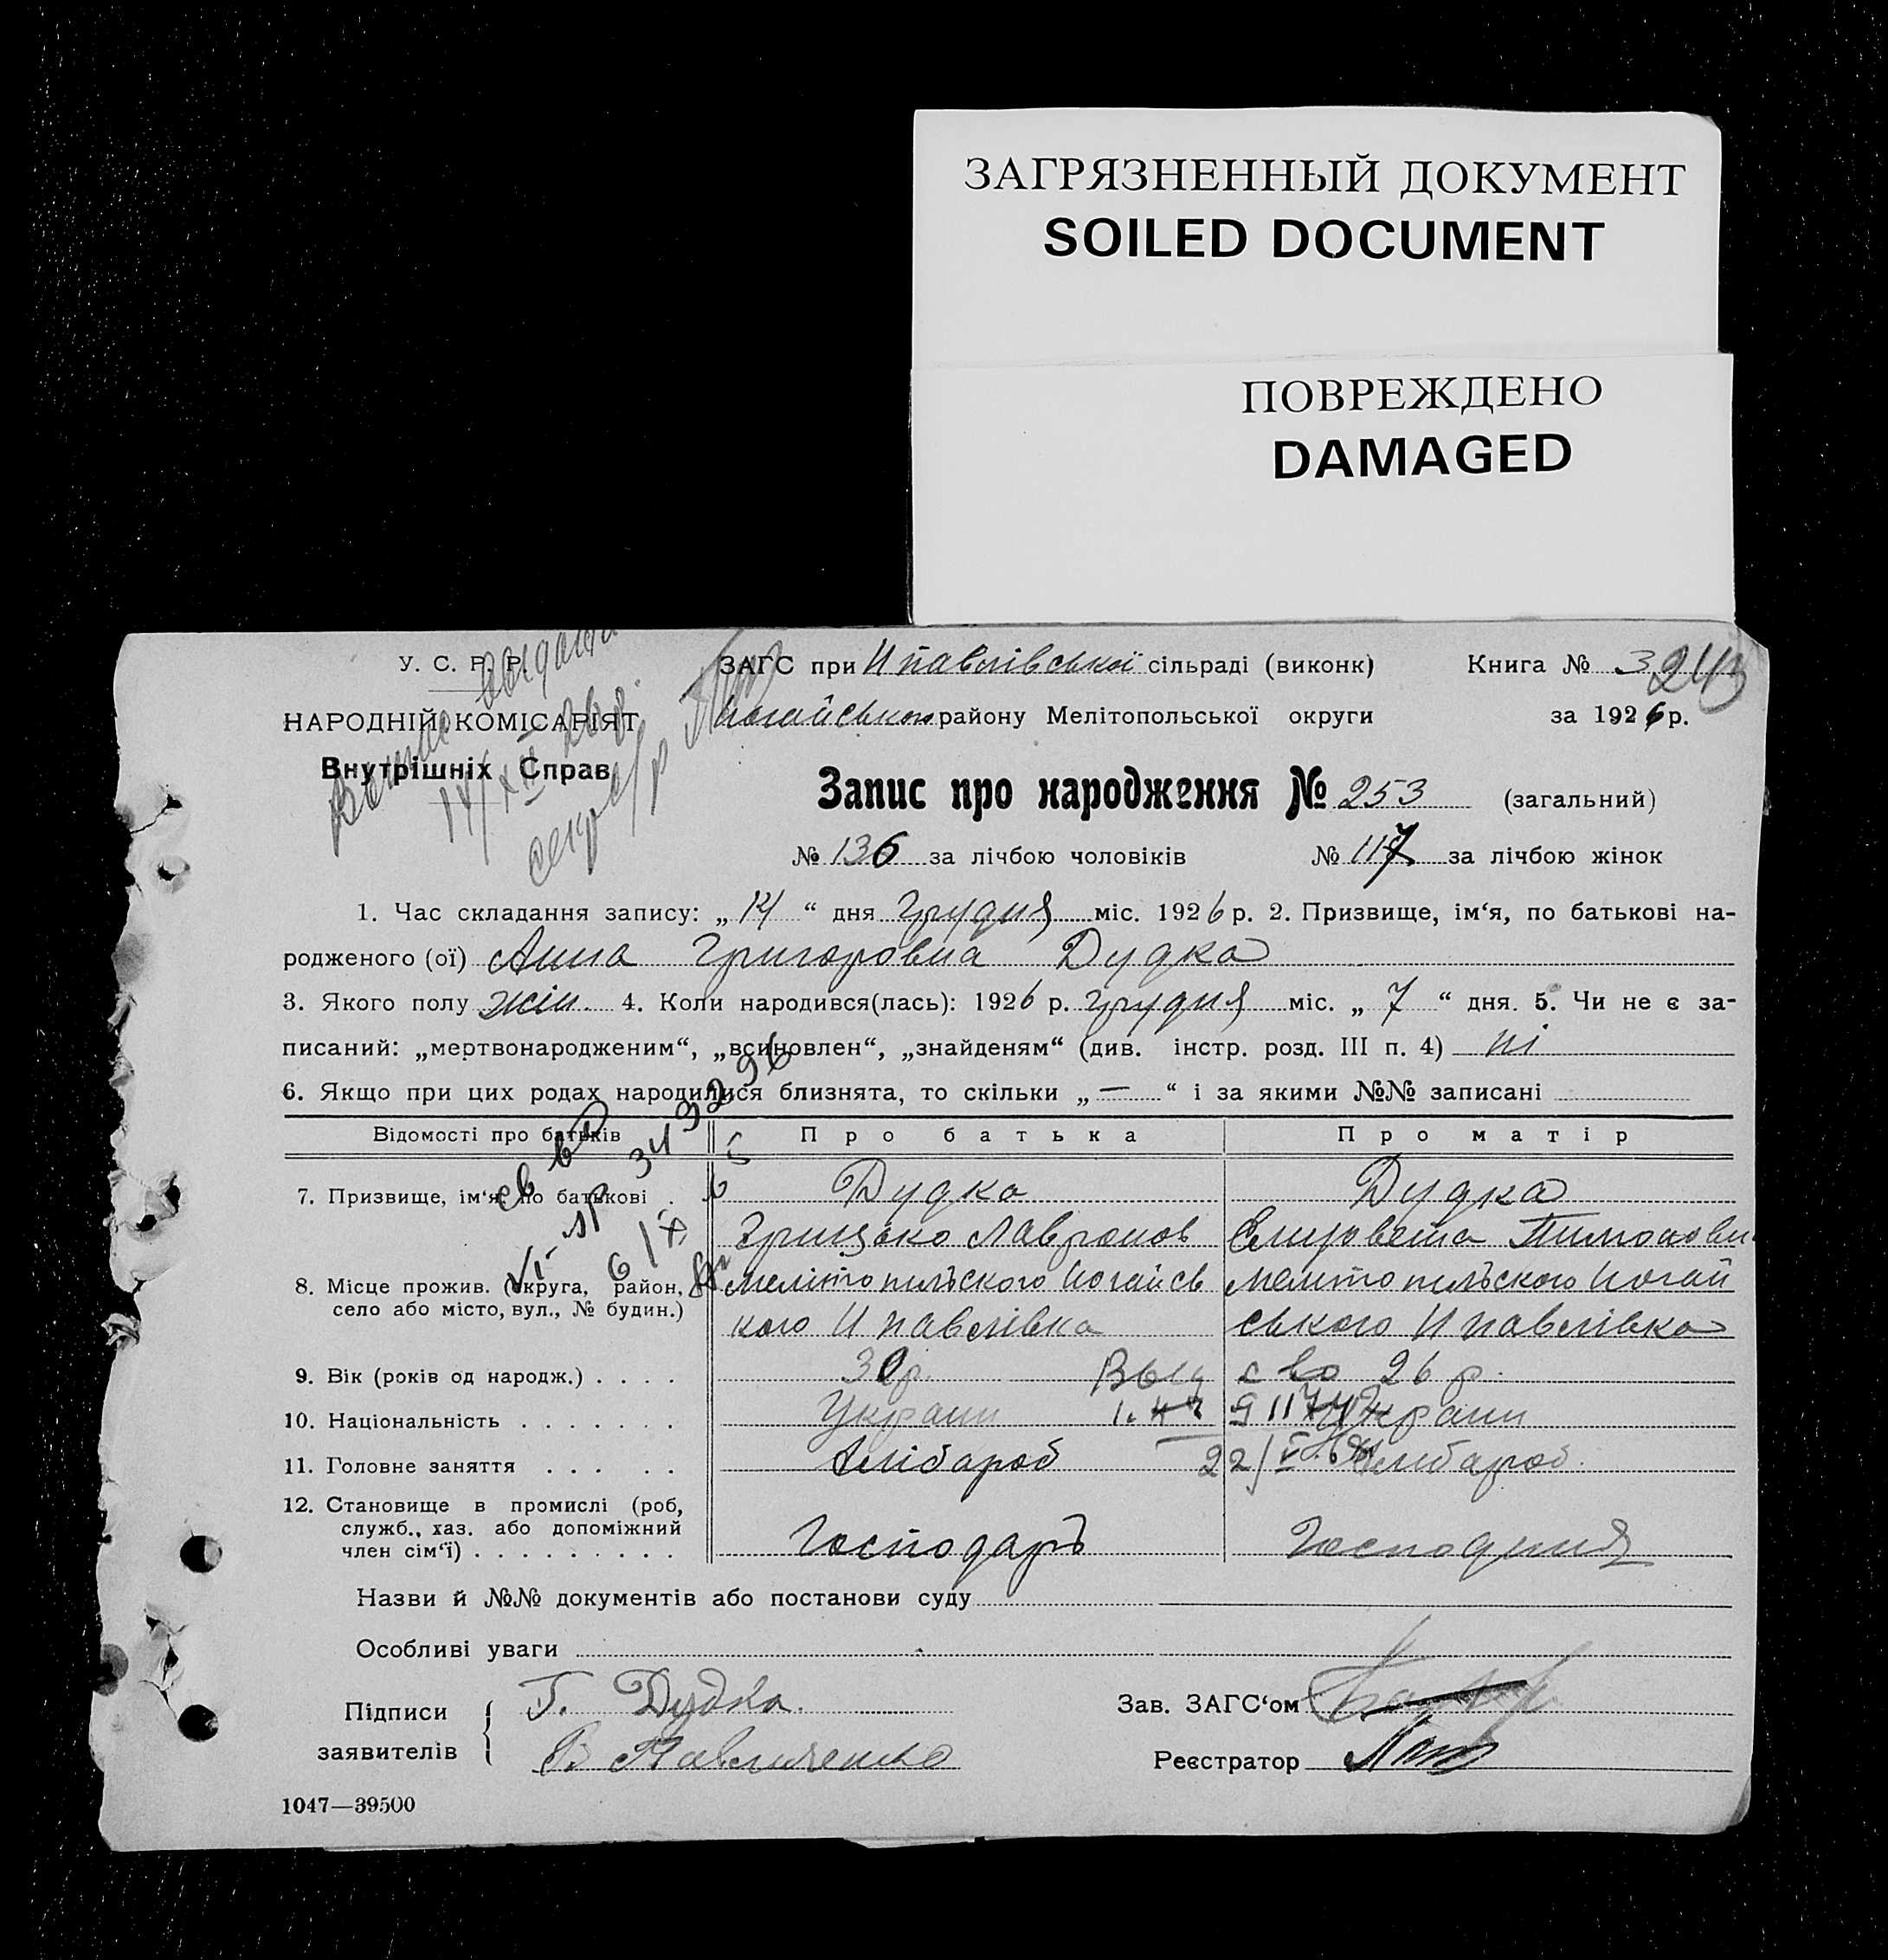 ЗАГРЯЗНЕННЫЙ ДОКУМЕНТ
SOILED DOCUMENT
ПОВРЕЖДЕНО
DAMAGED
У. С. Р. Р.
НАРОДНІЙ КОМІСАРІЯТ
Внутрішніх Справ
14/XII 26 р.
ЗАГС при Н павлівської сільраді (виконк) Книга № 3
243
Ногайського району Мелітопольської округи за 1926 р.
Запис про народження № 253 (загальний)
№ 136 за лічбою чоловіків № 117 за лічбою жінок
1. Час складання запису: „ 14 “ дня грудня міс. 1926 р. 2. Призвище, ім‘я, по батькові на-
родженого (ої) Анна Григоровна Дудка
3. Якого полу жін. 4. Коли народився(лась): 1926 р. грудня міс. „ 7 “ дня. 5. Чи не є за-
писаний: „мертвонародженим“, „всиновлен“, „знайденям“ (див. інстр. розд. III п. 4) ні
6. Якщо при цих родах народилися близнята, то скільки „ — “ і за якими №№ записані
Відомості про батьків Про батька Про матір
7. Призвище, ім‘я, по батькові . Дудка Дудка
Грицько Лавронов Елизовета Тимоховн
8. Місце прожив. (округа, район, Мелітопильского Ногайсь Мелітопильского Ногай
село або місто, вул., № будин.) кого Н павлівка ського Н павлівка
9. Вік (років од народж.) . . . . 30 р. 26 р.
10. Національність . . . . . . . Украин Украин
11. Головне заняття . . . . . Хлібароб Хлібароб.
12. Становище в промислі (роб,
служб., хаз. або допоміжний
член сім‘ї) . . . . . . . . . Господарь Господиня
Назви й №№ документів або постанови суду
Особливі уваги
Підписи Г. Дудка. Зав. ЗАГС‘ом
заявителів В Павличенко Реєстратор
1047—39500